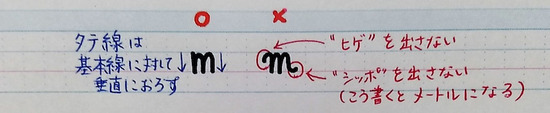 ○ ×
タテ線は
基本線に対して
垂直におろす
↓m↓
m
"ヒゲ"を出さない
"シッポ"を出さない
(こう書くとメートルになる)